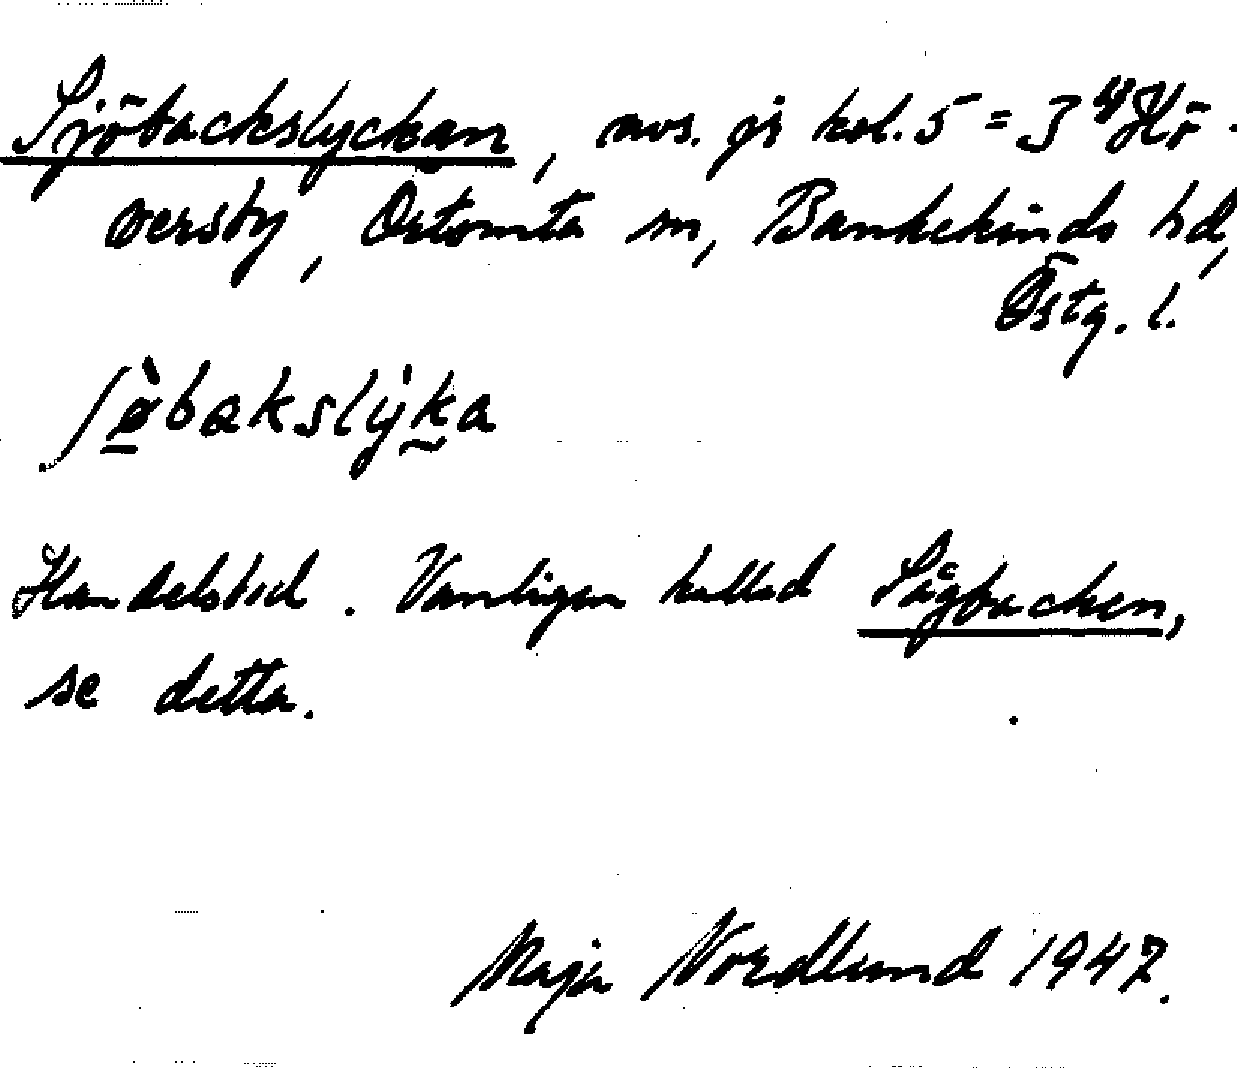 Sjöbackslyckan, avs. på kol. 5 = J 4 Hö-
versby, Örtomta sn, Bankekinds hd,
Östg. l.
ʃø̀bakslýka
Handelsbod. Vanligen kallad Sågbacken,
se detta.
Maja Nordlund 1947.